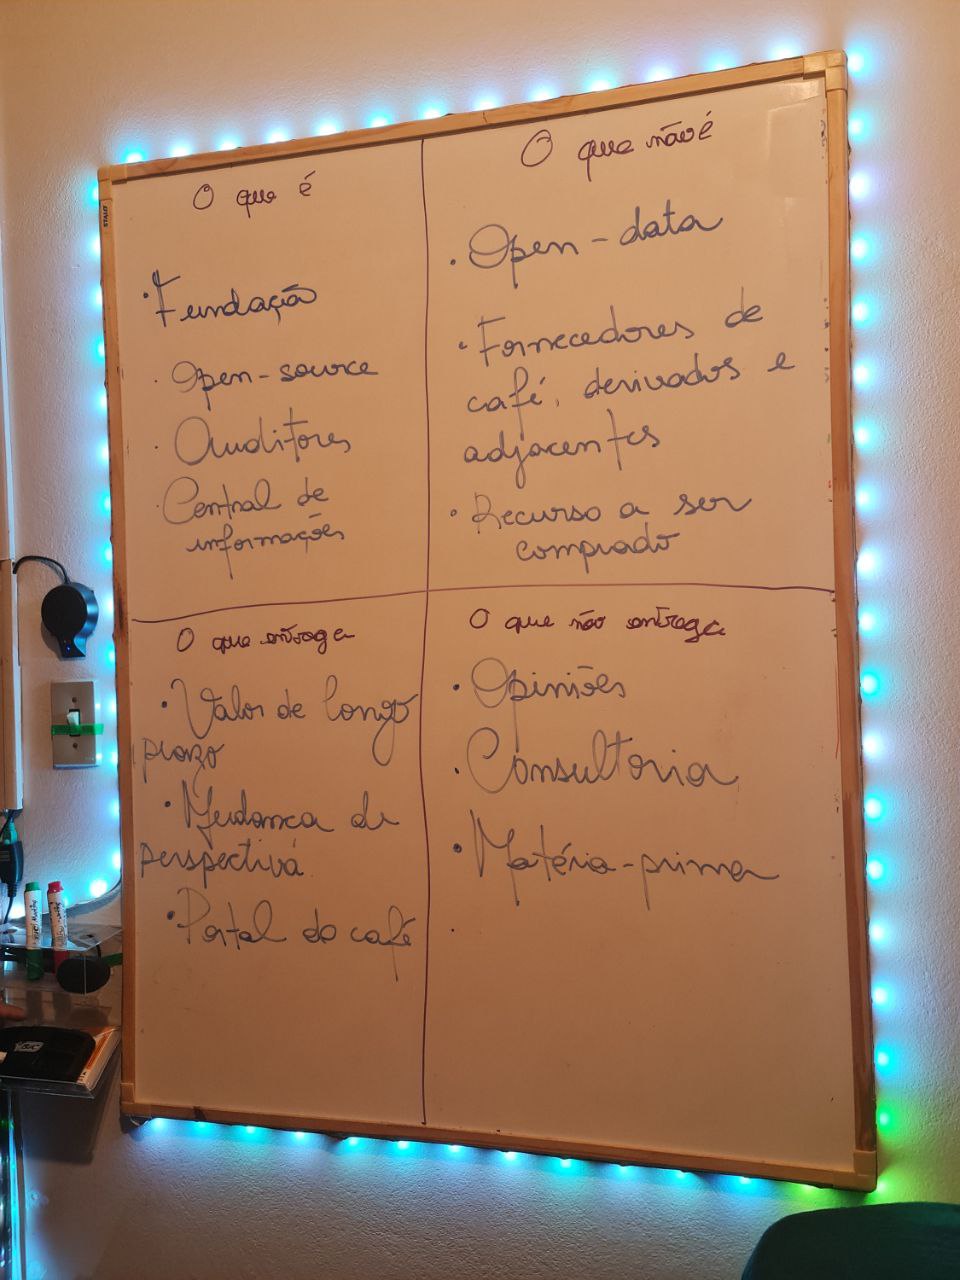 O que é
• Fundação
• Open-source
• Auditores
• Central de
informações
O que não é
• Open-data
• Fornecedores de
café, derivados e
adjacentes
• Recurso a ser
comprado
O que entrega
• Valor de longo
prazo
• Mudança de
perspectiva
• Portal do café
O que não entrega
• Opiniões
• Consultoria
• Matéria-prima
•